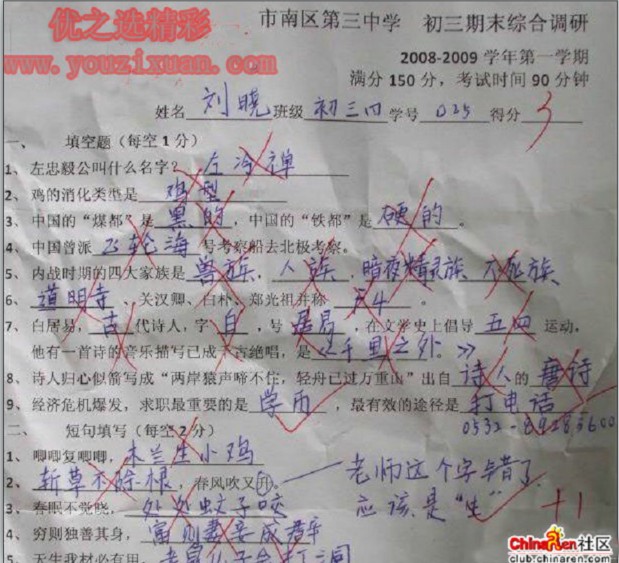 优之选精彩
www.youzixuan.com
市南区第三中学 初三期末综合调研
2008-2009 学年第一学期
满分 150 分，考试时间 90 分钟
姓名 刘晓 班级 初三四 学号 025 得分 3
一、 填空题（每空 1 分）
1、左忠毅公叫什么名字？ 左冷禅
2、鸡的消化类型是 鸡型
3、中国的“煤都”是 黑的 ，中国的“铁都”是 硬的 。
4、中国曾派 飞轮海 号考察船去北极考察。
5、内战时期的四大家族是 兽族、人族、暗夜精灵族 不死族
6、 道明寺 、关汉卿、白朴、郑光祖并称 F4 。
7、白居易， 古 代诗人，字 白 ，号 居易 ，在文学史上倡导 五四 运动。
他有一首诗的音乐描写已成千古绝唱，是 《千里之外。》
8、诗人归心似箭写成“两岸猿声啼不住，轻舟已过万重山”出自 诗人 的 唐诗
9、经济危机爆发，求职最重要的是 学历 ，最有效的途径是 打电话
0532-89283600
二、 短句填写（每空 2 分）
1、唧唧复唧唧， 木兰生小鸡
2、 斩草不除根 ，春风吹又升。 老师这个字写错了
应该是“生” +1
3、春眠不觉晓， 处处蚊子咬
4、穷则独善其身， 富则妻妾成群
5、天生我材必有用，
ChinaRen社区
club.chinaren.com